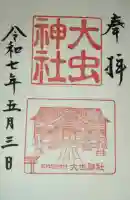 奉拝
大虫
神社
大虫神社
令和七年五月三日